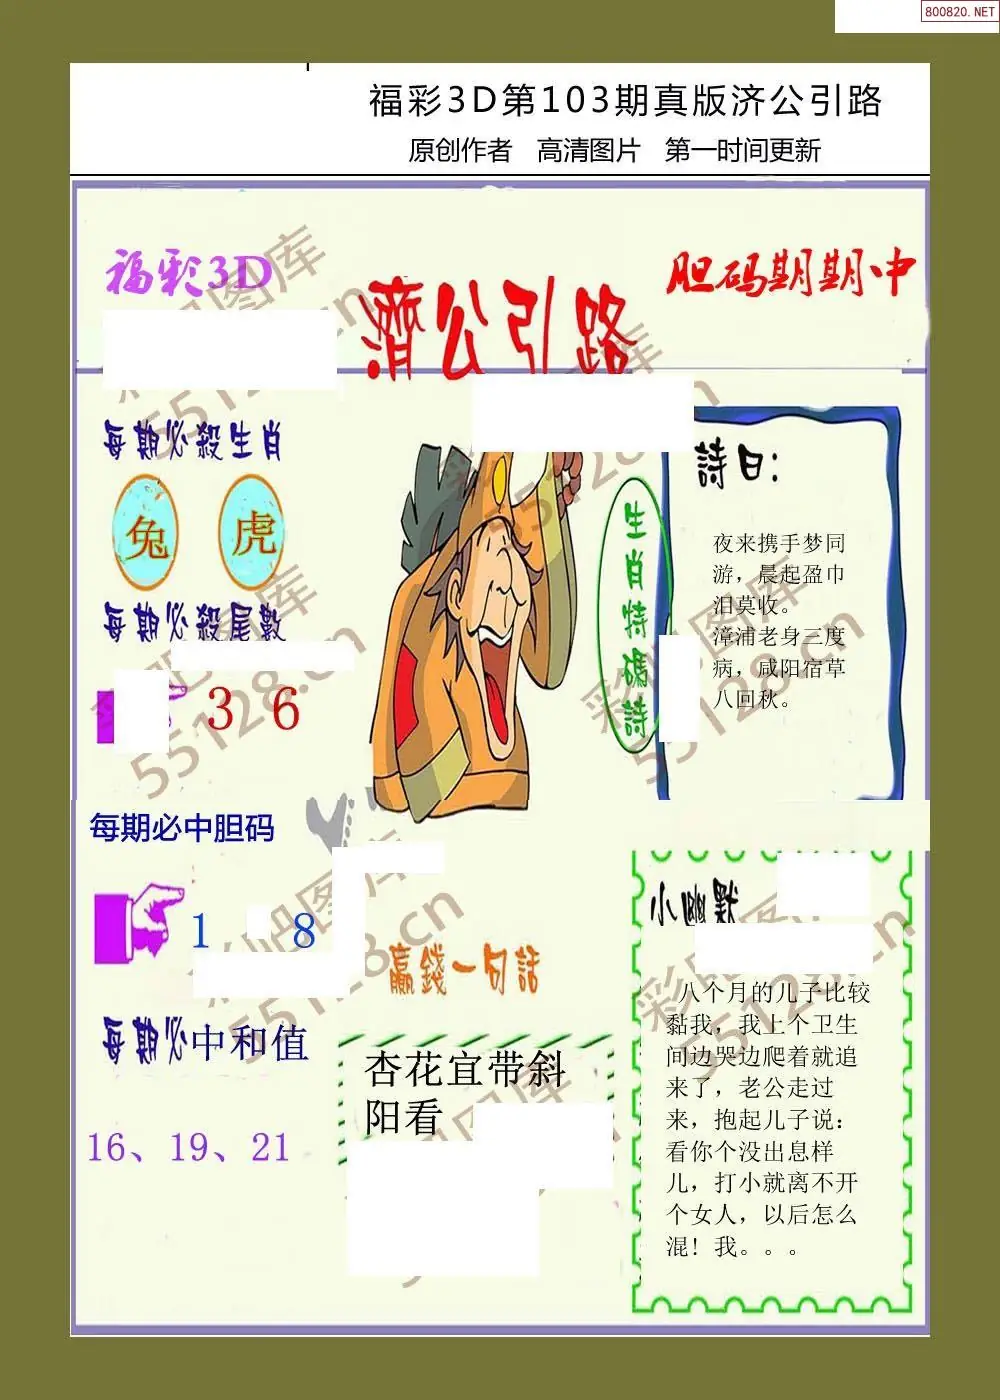 800820.NET
福彩3D第103期真版济公引路
原创作者 高清图片 第一时间更新
福彩3D
濟公引路
胆码期期中
每期必殺生肖
兔 虎
每期必殺尾數
3 6
每期必中胆码
1 8
每期必中和值
16、19、21
生肖特碼詩
詩曰:
夜来携手梦同
游，晨起盈巾
泪莫收。
漳浦老身三度
病，咸阳宿草
八回秋。
贏錢一句話
杏花宜带斜
阳看
小幽默
八个月的儿子比较
黏我，我上个卫生
间边哭边爬着就追
来了，老公走过
来，抱起儿子说：
看你个没出息样
儿，打小就离不开
个女人，以后怎么
混！我。。。
彩吧图库
55128.cn
彩吧图库
55128.cn
彩吧图库
55128.cn
彩吧图库
55128.cn